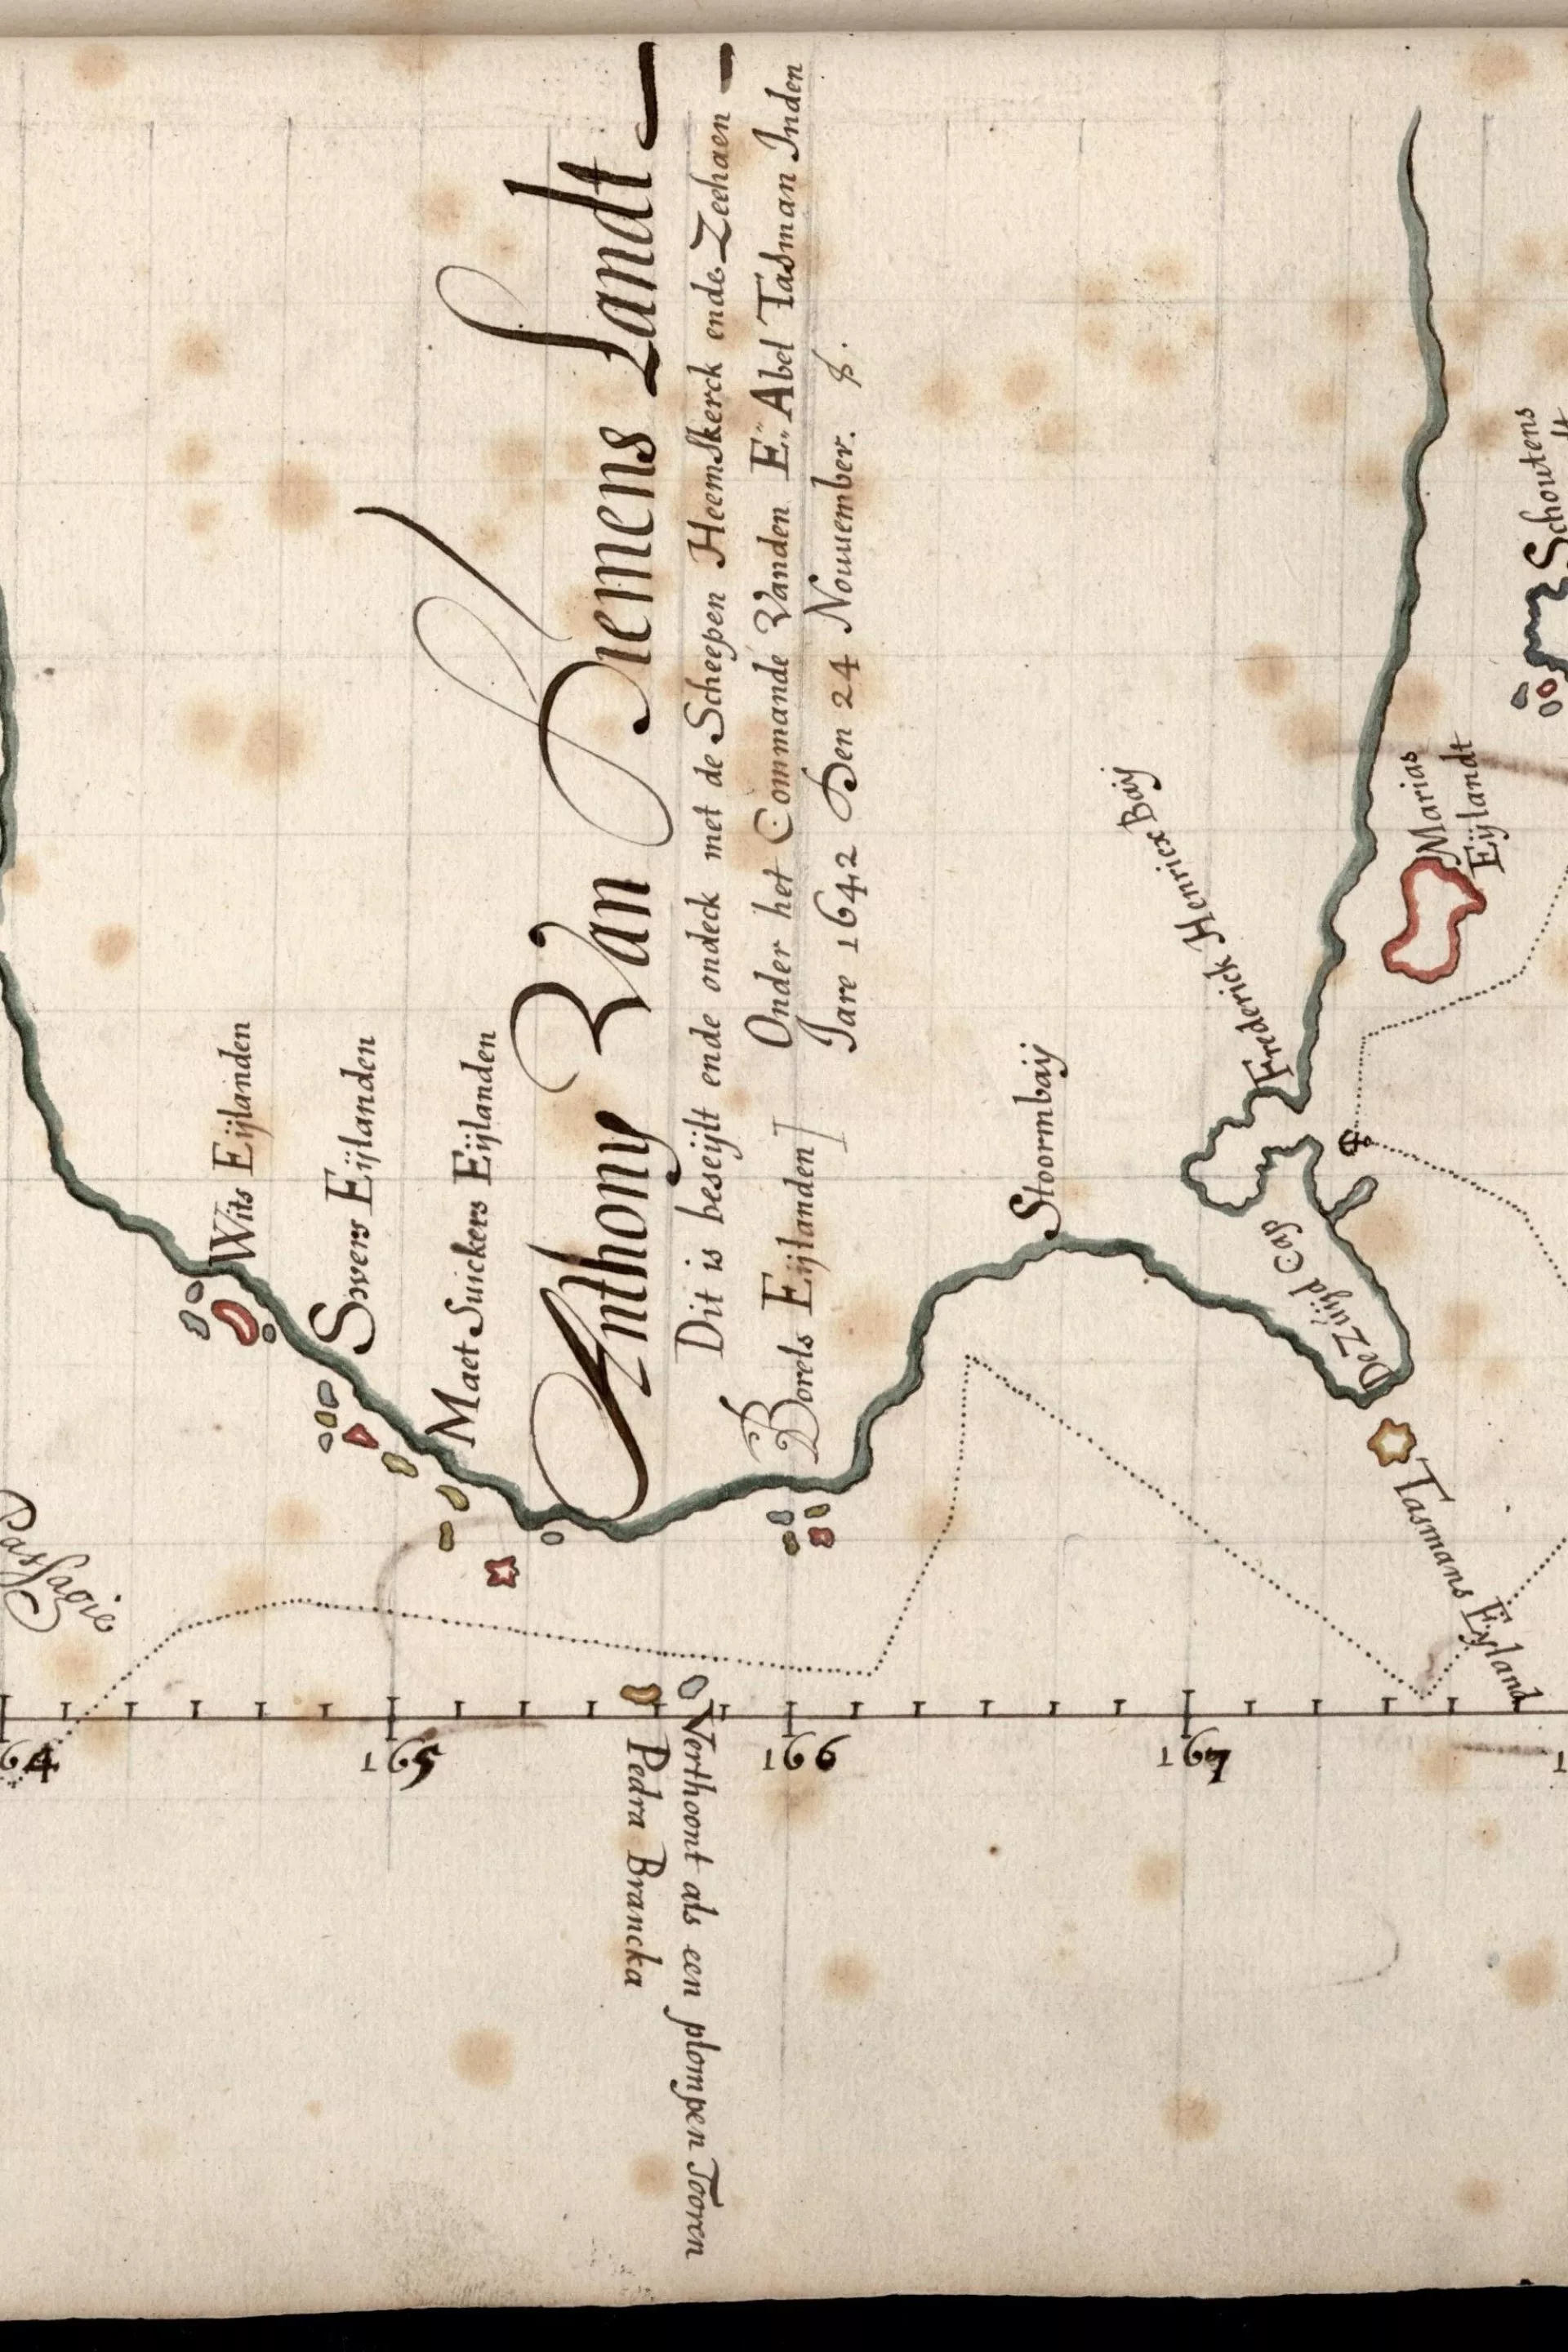 Anthony Van Diemens Landt
Dit is beseijlt ende ondeck met de Scheepen Heemskerck ende Zeehaen
Onder het Commande Vanden E. Abel Tasman Inden
Jare 1642 Den 24 Nouuember.
Wits Eijlanden
Swers Eijlanden
Maet Suickers Eijlanden
Borels Eijlanden
Stoormbaij
Frederick Henricx Baij
De Zuijd Cap
Marias
Eijlandt
Schoutens
Tasmans Eijland
Pedra Brancka
Verthoont als een plompen Tooren
164
165
166
167